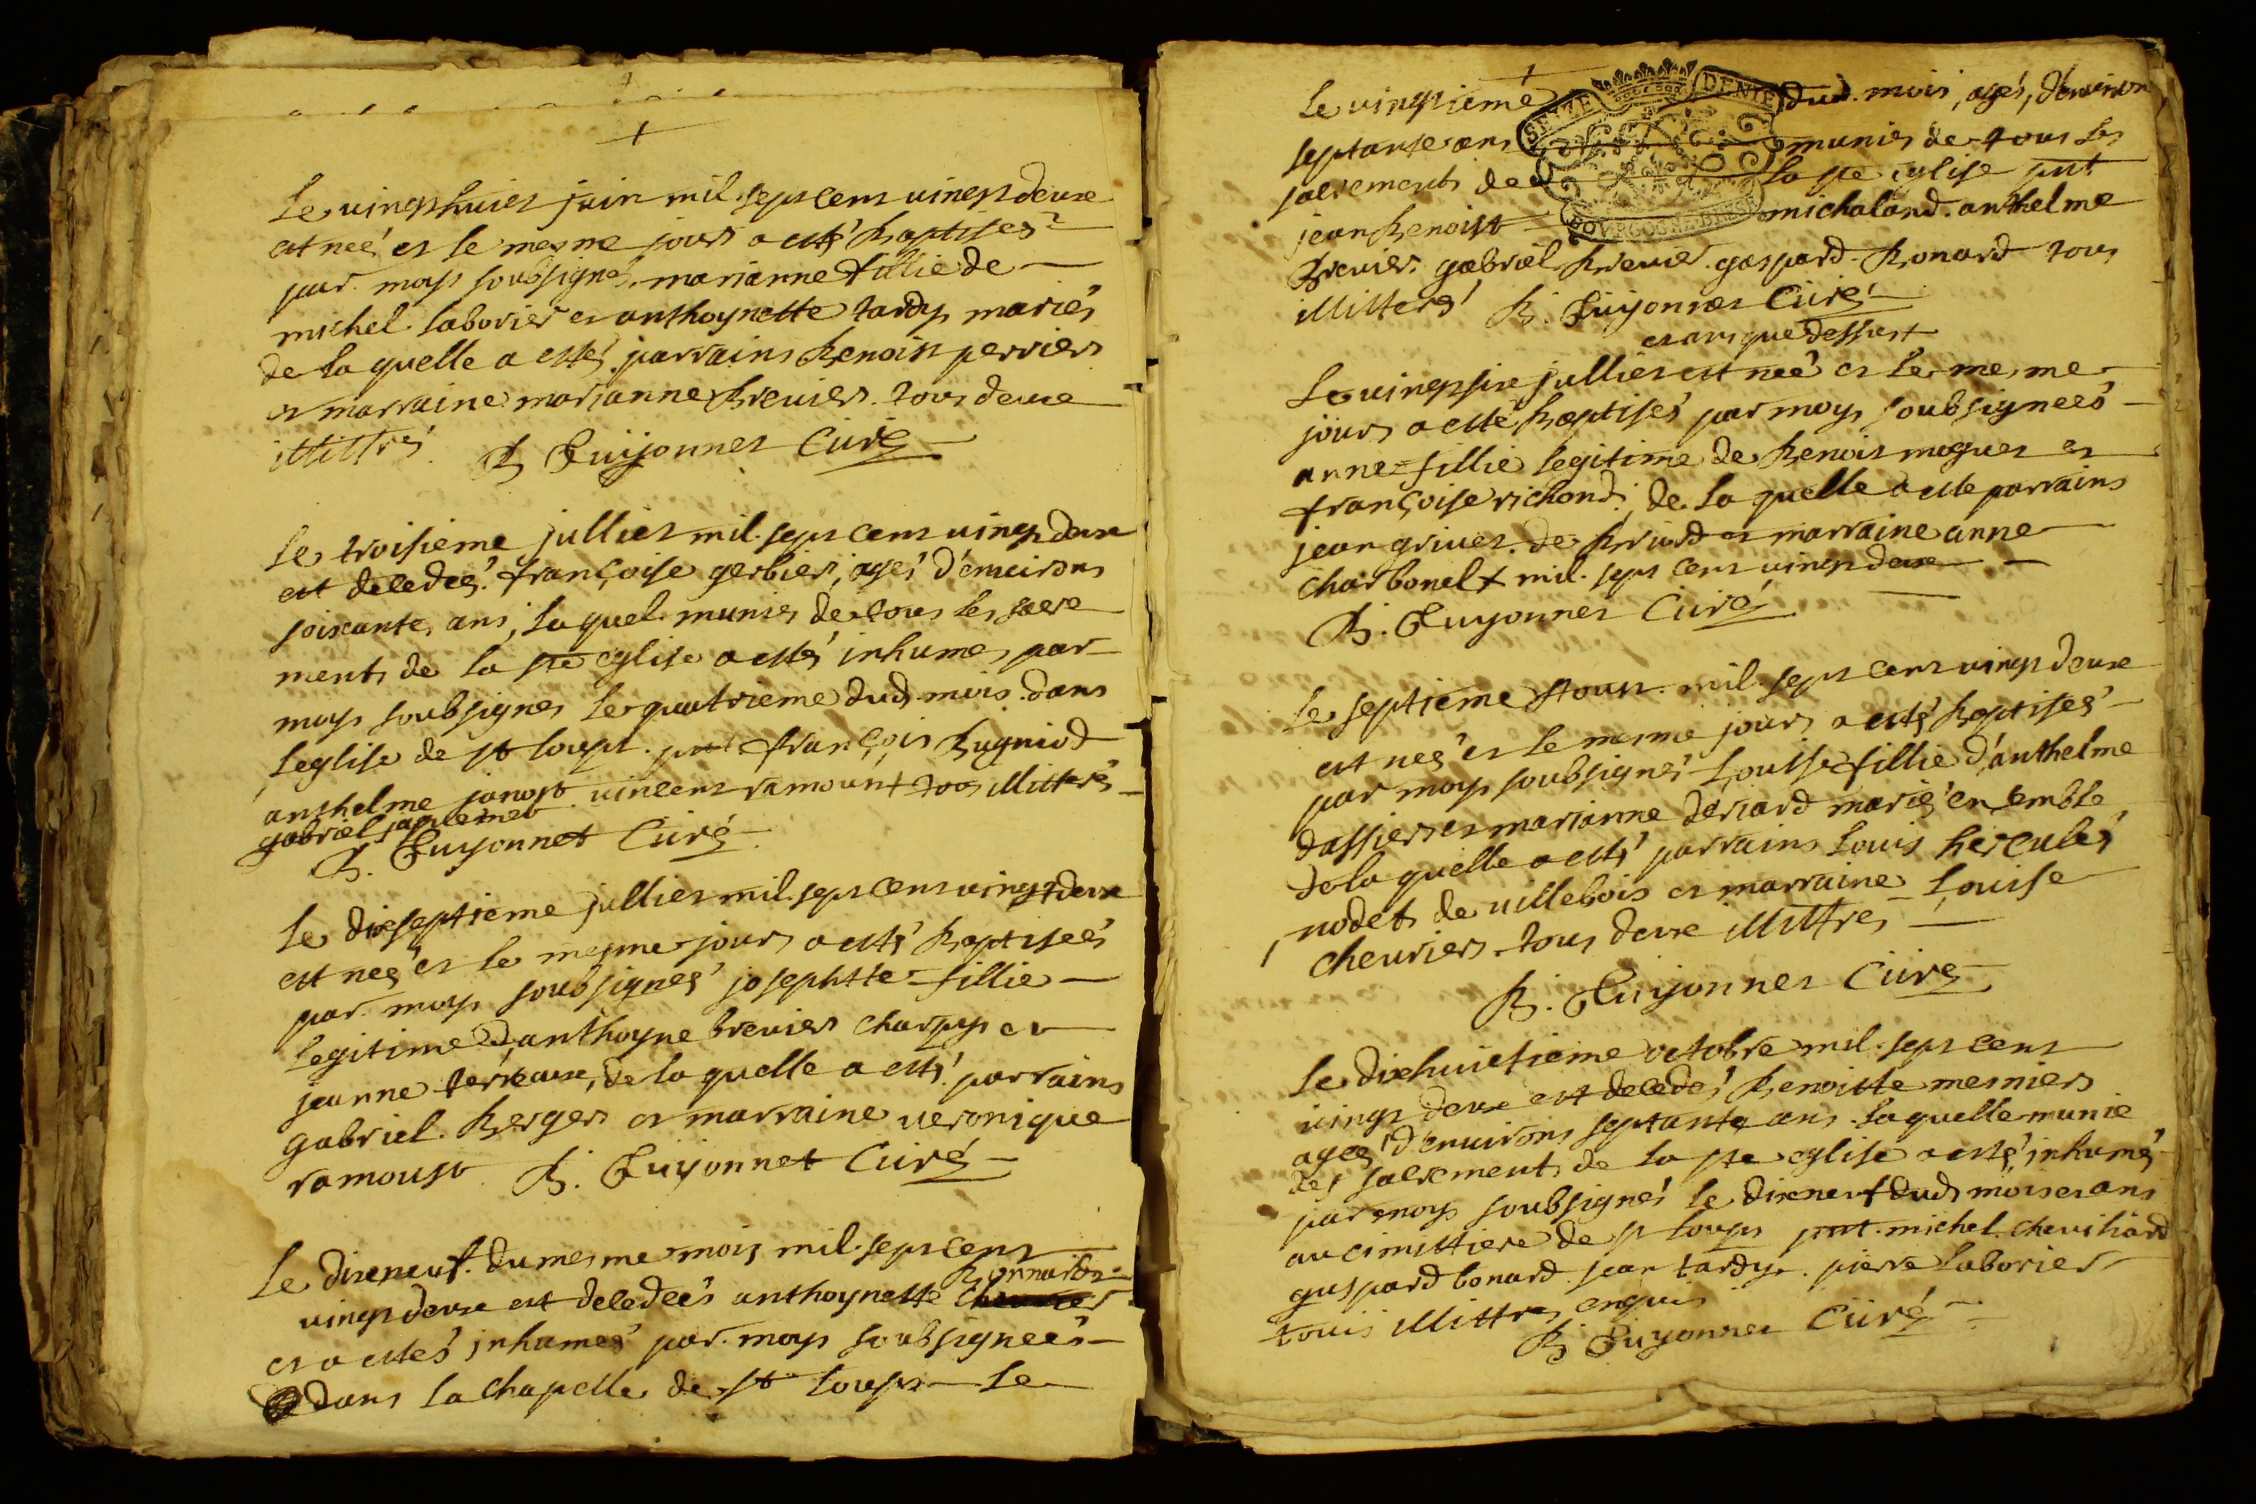 Le vingthuict juin mil sept cent vingt deuxe
est neé et le mesme jours a esté baptisés
par moys soubsignés marianne fillie de
michel laborier et anthoynette tardy mariés
de la quelle a estés parrains benoist perriers
et marraine marianne brevier tous deuxe
illittrés B Guyonnet Curé
Le troisieme jullies mil sept cent vingt deuxe
est decedeé françoise gerbier, agés d'environs
soixante ans, laquel munies de tous les sacre
ments de la ste eglise a estés inhumes par
moys soubsignes le quatrieme dud mois dans
leglise de st loups pnt françois bugniod
anthelme janost vincent ramount tos illitterés
gabriel jaquemet
B. Guyonnet Curé
Le dixseptieme jullies mil sept cent vingt deuxe
est neé et le mesme jours a esté baptiseés
par moys soubsignes josephtte fillie
legitime d'anthoyne brevier charpy et
jeanne terreaux, de la quelle a esté parrains
gabriel berger et marraine veronique
ramoust B. Guyonnet Curé
Le dixneuf du mesme mois mil sept cent
bonnard
vingt deuxe est decedeés anthoynette
et a estés inhumés par moys soubsigneés
dans la chapelle de st loups le
Le vingtieme dud mois, ages, d'environ
SEYME DENIE
septante ans munies de tous les
sacrements de la ste eglise pnt
jean benoist michaland anthelme
BOVRGOGNE
brevier gabriel brevier gaspard bonard tous
illitterés B. Guyonnet Curé
et ans que dessus
Le vingtsixe jullies est neé et le mesme
jours a esté baptisés par moys soubsigneés
anne fillie legitime de benoit moguet et
françoise richond, de la quelle a este parrains
jean grivet de briord et marraine anne
charbonel mil sept cent vingt deuxe
B. Guyonnet Curé
Le septieme Aoust mil sept cent vingt deuxe
est neé et le mesme jours a esté baptisés
par moys soubsignés Louise fillie d'anthelme
dassier et marianne deriard mariés ensemble
de la quelle a estés parrains Louis hercules
nodet de villebois et marraine Louise
chevriers tous deuxe illittres
B. Guyonnet Curé
Le dixhuictieme octobre mil sept cent
vingt deuxe est decedeé benoitte mesniers
ageés d'environs septante ans laquelle munie
des sacrements de la ste eglise a estés inhumés
par moys soubsignés le dixneuf dud mois et ans
au cimittiere de st loups pnt michel chevilliard
guspard bonard jean tardy pierre laborier
touis illittres enquis
B Guyonnet Curé